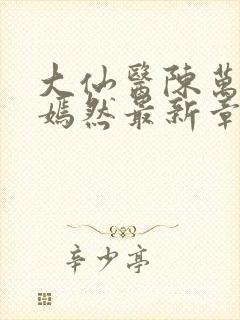 大仙醫陳萬
嫣然最新章
辛少亭